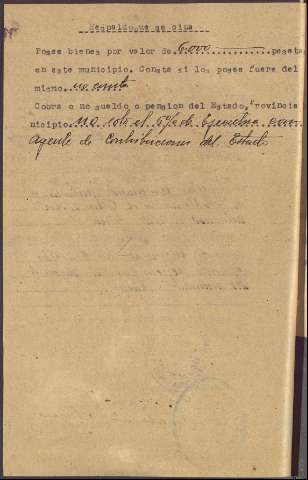 Respaldo que se cita
Posee bienes por valor de 6.000 ............ peseta
en este municipio. Consta si los posee fuera del
mismo. no consta
Cobra o no sueldo o pension del Estado, Provincia
nicipio. no, solo el 5% de como
Agente de Contribuciones del Estado